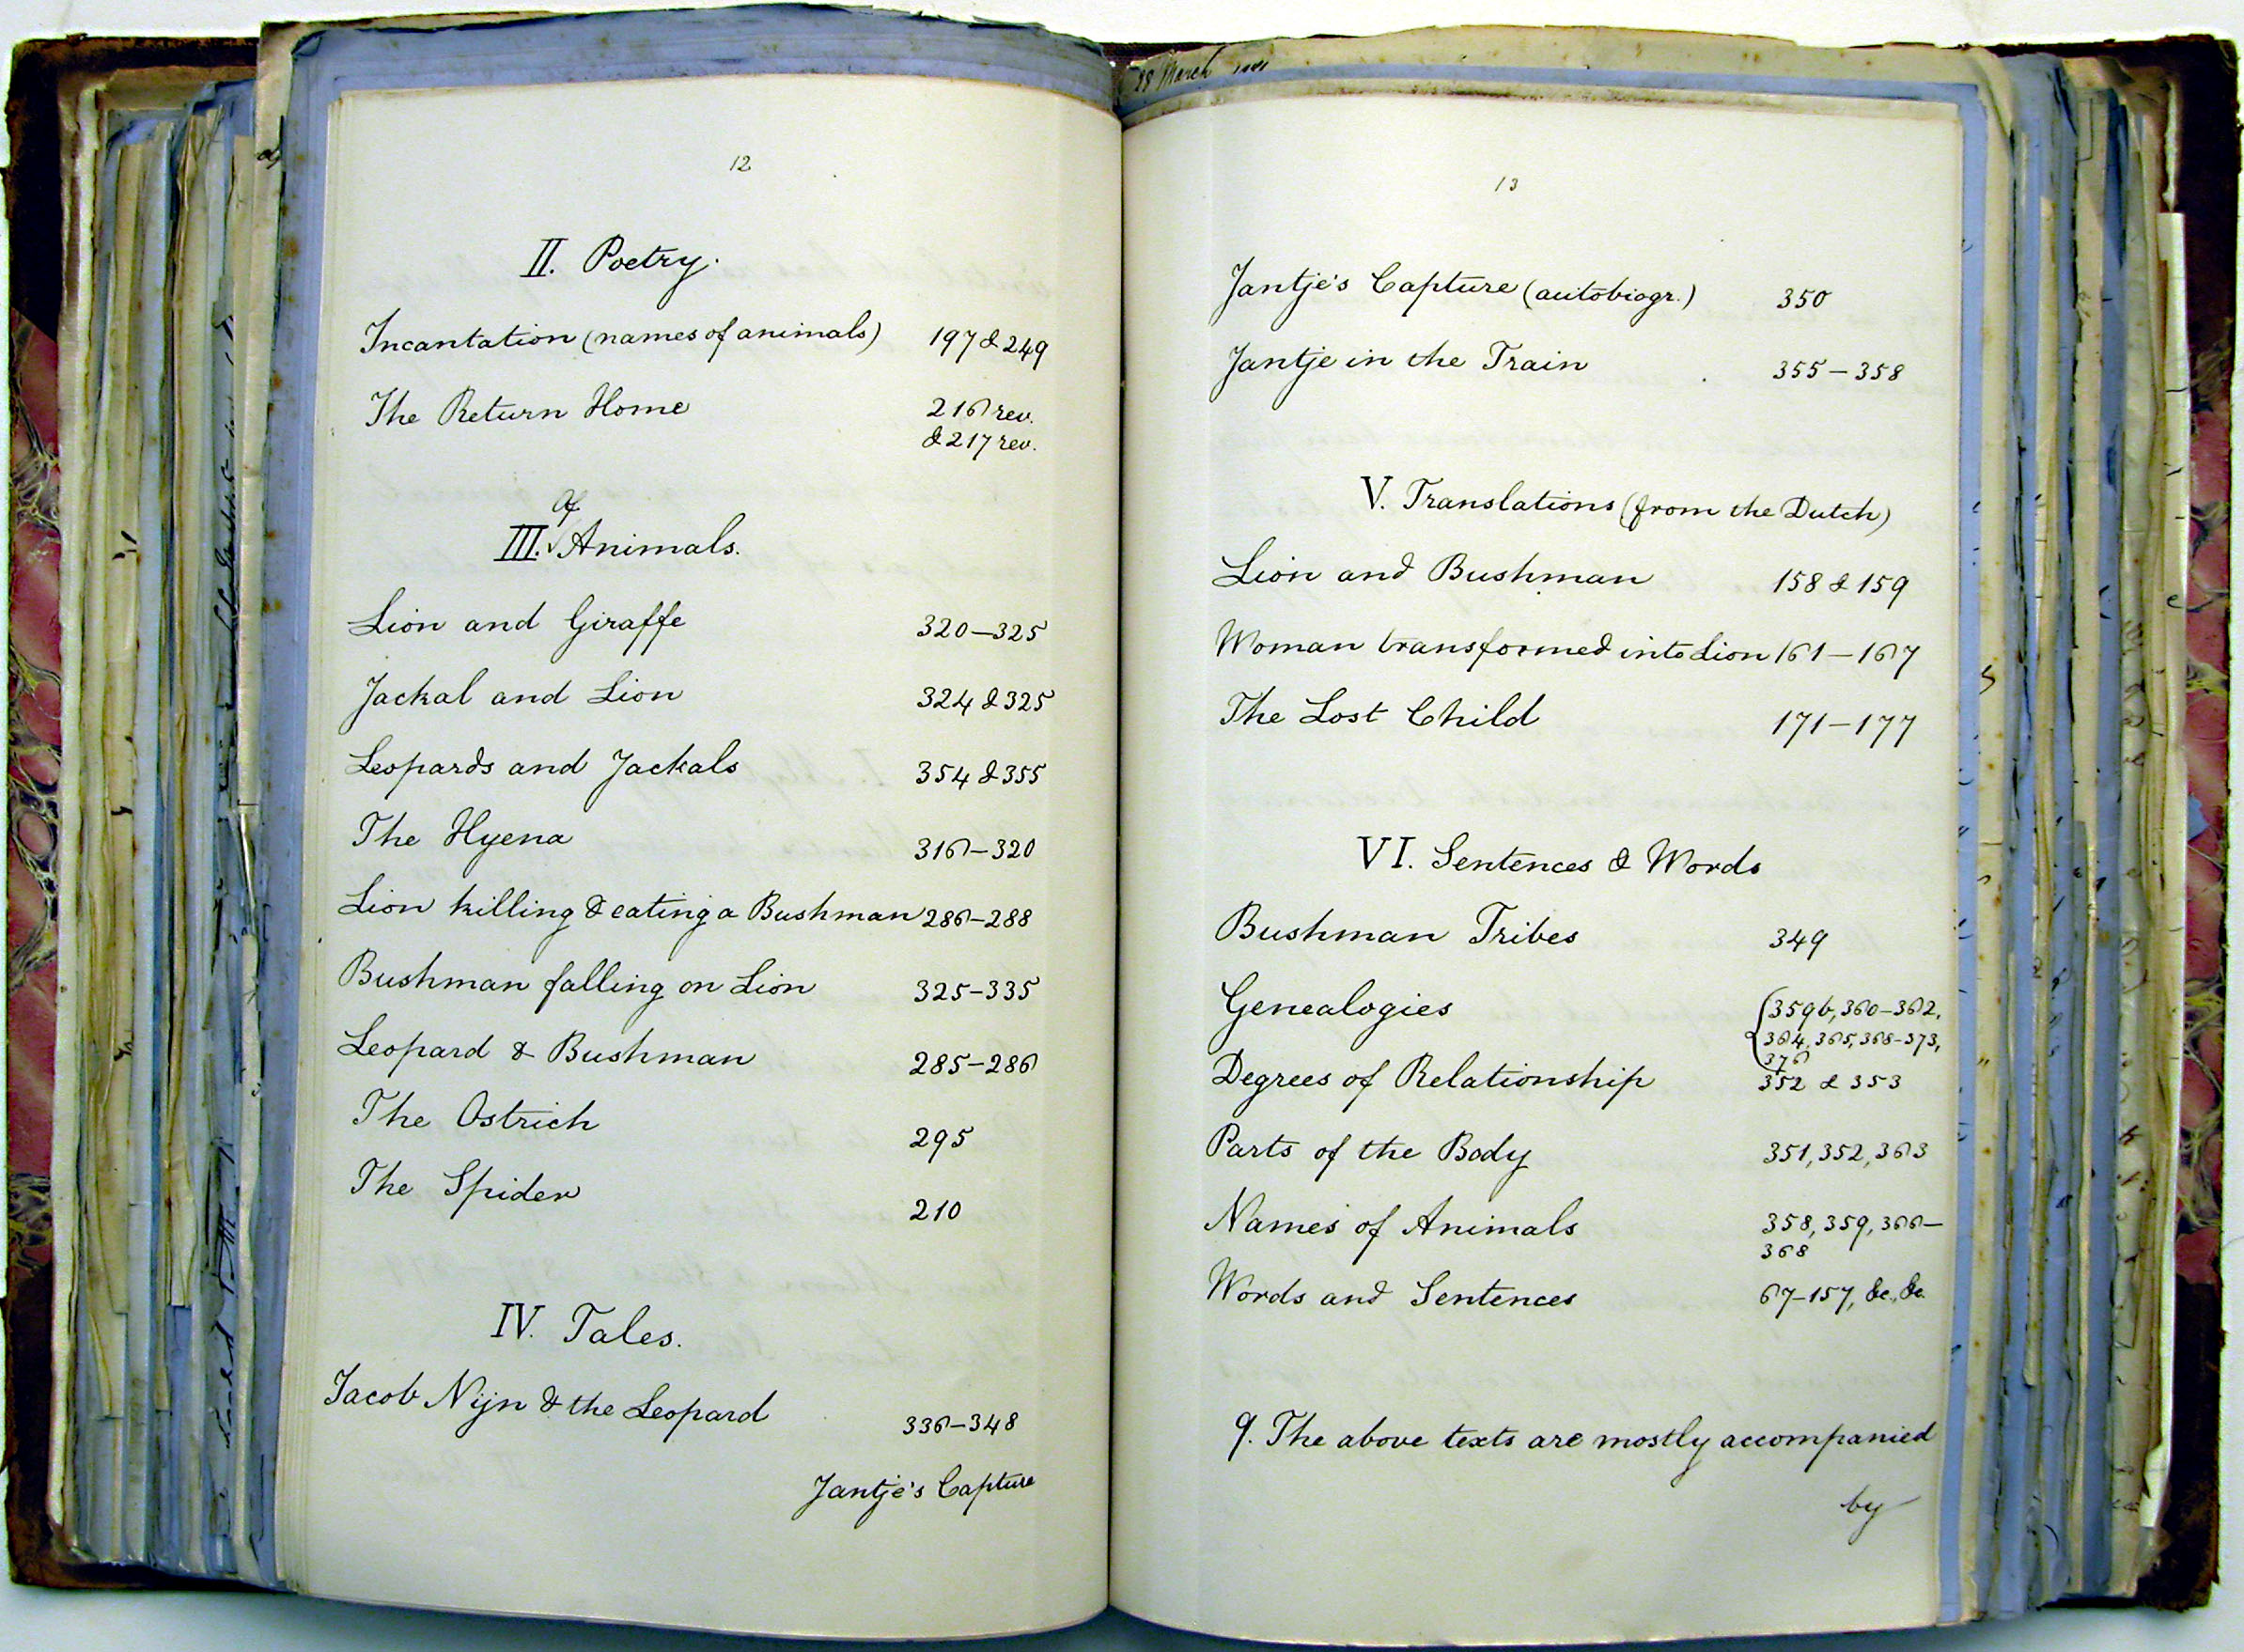 12
II. Poetry.
Incantation (names of animals) 197 & 249
The Return Home 216 rev.
& 217 rev.
Of
III. Animals.
Lion and Giraffe 320–325
Jackal and Lion 324 & 325
Leopards and Jackals 354 & 355
The Hyena 316–320
Lion killing & eating a Bushman 286–288
Bushman falling on Lion 325–335
Leopard & Bushman 285–286
The Ostrich 295
The Spider 210
IV. Tales.
Jacob Nijn & the Leopard 336–348
Jantje's Capture
28 March
13
Jantje's Capture (autobiogr.) 350
Jantje in the Train 355–358
V. Translations (from the Dutch)
Lion and Bushman 158 & 159
Woman transformed into Lion 161–167
The Lost Child 171–177
VI. Sentences & Words
Bushman Tribes 349
Genealogies 359b, 360–362,
364, 365, 368–373,
376
Degrees of Relationship 352 & 353
Parts of the Body 351, 352, 363
Names of Animals 358, 359, 366–
368
Words and Sentences 67–157, &c., &c.
9. The above texts are mostly accompanied
by